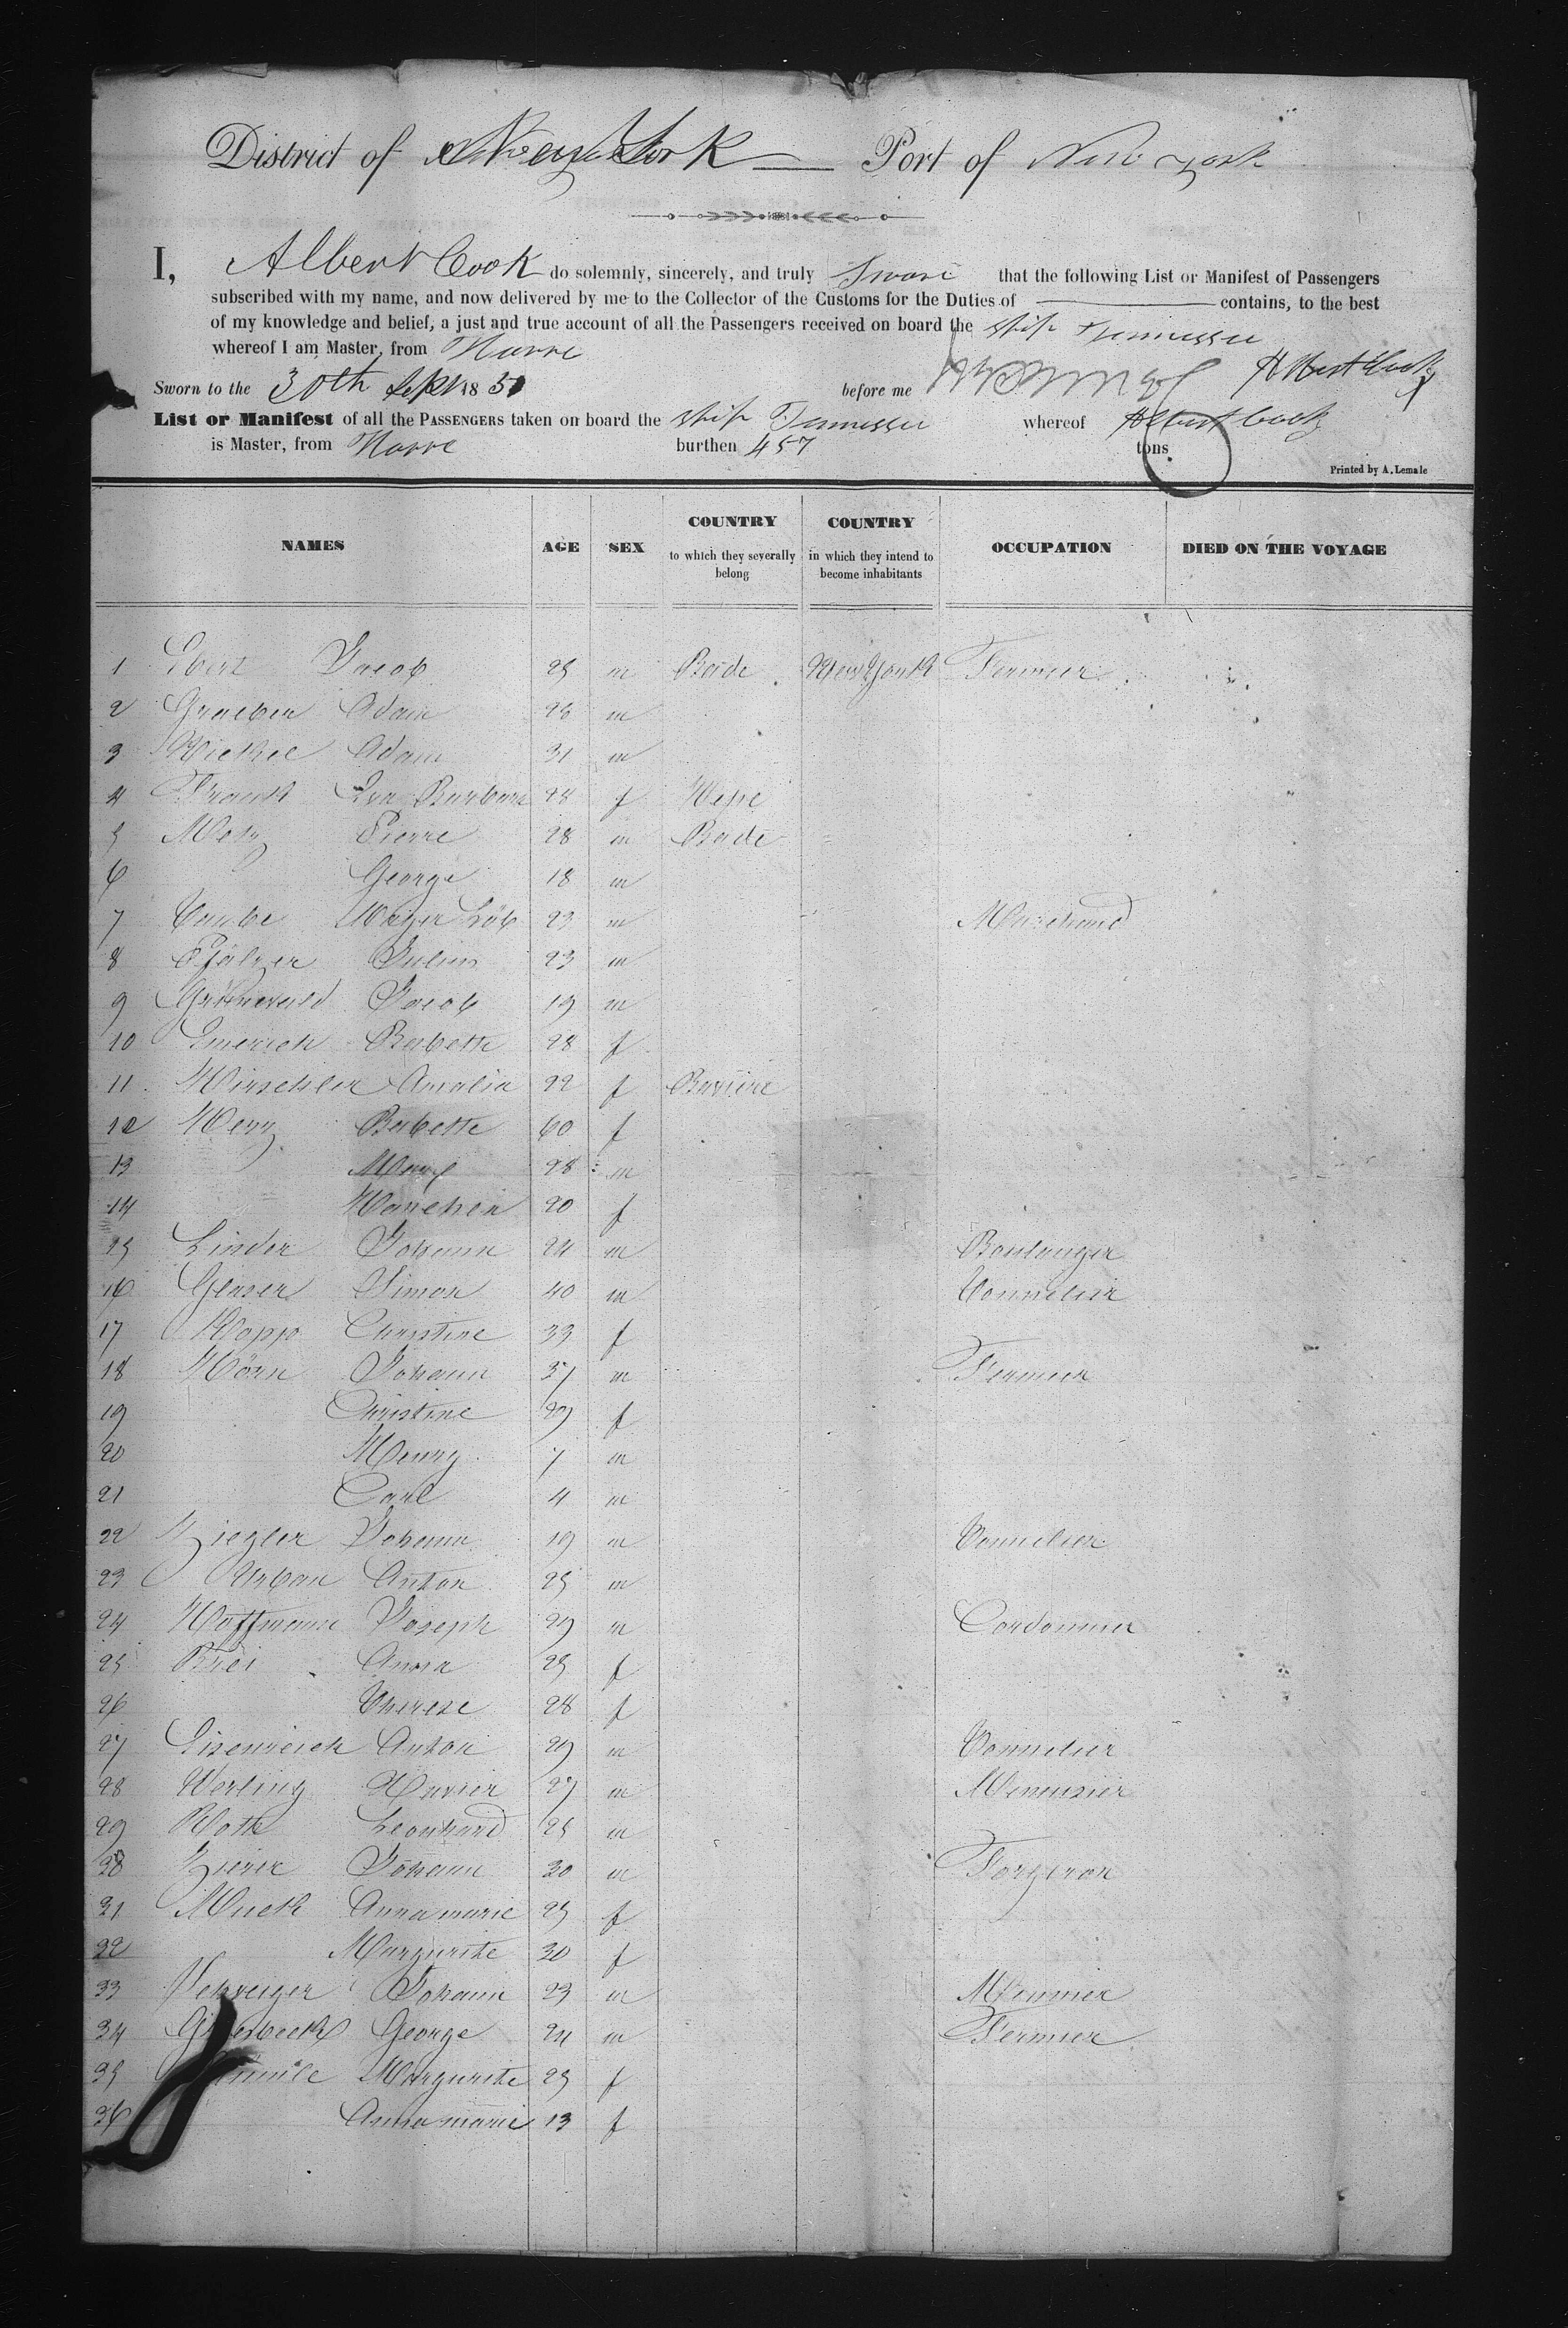 District of New York Port of New York
I, Albert Cook do solemnly, sincerely, and truly Swear that the following List or Manifest of Passengers
subscribed with my name, and now delivered by me to the Collector of the Customs for the Duties of contains, to the best
of my knowledge and belief, a just and true account of all the Passengers received on board the ship Tennessee
whereof I am Master, from Havre
Sworn to the 30th Sept 1851 before me Albert Cook
List or Manifest of all the PASSENGERS taken on board the ship Tennessee whereof Albert Cook
is Master, from Havre burthen 457 tons
Printed by A. Lemale
NAMES AGE SEX COUNTRY to which they severally belong COUNTRY in which they intend to become inhabitants OCCUPATION DIED ON THE VOYAGE
1 Jacob 25 m Bade New York Fermier
2 Graeber Adam 28 m
3 Adam 31 m
4 Frank Eva Barbara 28 f Hesse
5 Metz Pierre 28 m Bade
6 George 18 m
7 Taube Mayer Löb 23 m Marchand
8 Pfälzer Julius 23 m
9 Grünewald Jacob 19 m
10 Emerich Babette 28 f
11 Hirschler Amalia 22 f Bavière
12 Herz Babette 60 f
13 Marx 28 m
14 Hanchen 20 f
15 Linder Johann 24 m Boulanger
16 Glaser Simon 40 m Tonnelier
17 Rapp Christine 33 f
18 Hörn Johann 37 m Fermier
19 Christine 29 f
20 Henry 7 m
21 Carl 4 m
22 Ziegler Johann 19 m Tonnelier
23 Urban Anton 25 m
24 Hoffmann Joseph 29 m Cordonnier
25 Anna 25 f
26 Therese 28 f
27 Eisenreich Anton 29 m Tonnelier
28 Werling Xavier 27 m Menuisier
29 Roth Leonhard 25 m
Johann 30 m Forgeron
31 Muck Anna marie 25 f
32 Margurite 30 f
33 Johann 23 m Meunier
34 George 24 m Fermier
35 Margurite 25 f
36 Anna marie 13 f